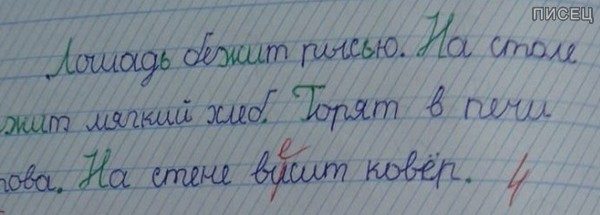 ПИСЕЦ
Лошадь бежит рысью. На столе
жит мягкий хлеб. Горят в печи
рова. На стене вусит ковёр. 4
е